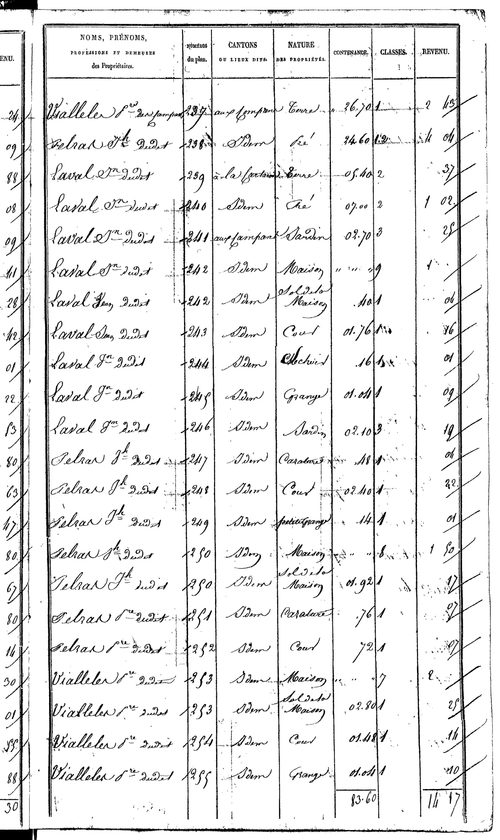 ENU.
NOMS, PRÉNOMS, PROFESSIONS ET DEMEURES des Propriétaires. NUMÉROS du plan. CANTONS OU LIEUX DITS. NATURE DES PROPRIÉTÉS. CONTENANCE. CLASSES. REVENU.
24 Vialleler Pre 237 aux Camp Terre 26.70 1 2 43
09 Pelras Jh dudit 238 Idem Pré 24.60 4 04
88 Laval Jn dudit 239 à la Terre 05.40 2 37
08 Laval Jn dudit 240 Idem Pré 07.00 2 1 02
09 Laval Jn dudit 241 aux Camp Jardin 02.70 3 25
41 Laval Jn dudit 242 Idem Maison " " " 9
28 Laval dudit 242 Idem Sol de la Maison .40 1 06
42 Laval dudit 243 Idem Cour 01.76 1 16
01 Laval Jn dudit 244 Idem .16 1 01
22 Laval Jn dudit 245 Idem Grange 01.04 1 09
53 Laval Jn dudit 246 Idem Jardin 02.10 3 19
80 Pelras Jh dudit 247 Idem .48 1 06
63 Pelras Jh dudit 248 Idem Cour 02.40 1 22
47 Pelras Jh dudit 249 Idem petite Grange .14 1 01
80 Pelras Jh dudit 250 Idem Maison " " 8 1 50
67 Pelras Jh dudit 250 Idem Sol de la Maison 01.92 1 17
80 Pelras Pre dudit 251 Idem .76 1 07
14 Pelras Pre dudit 252 Idem Cour 72 1 07
30 Vialleler Pre dudit 253 Idem Maison " " 7 2
01 Vialleler Pre dudit 253 Idem Sol de la Maison 02.80 1 25
55 Vialleler Pre dudit 254 Idem Cour 01.48 1 14
88 Vialleler Pre dudit 255 Idem Grange 01.04 1 10
30 83.60 14 17